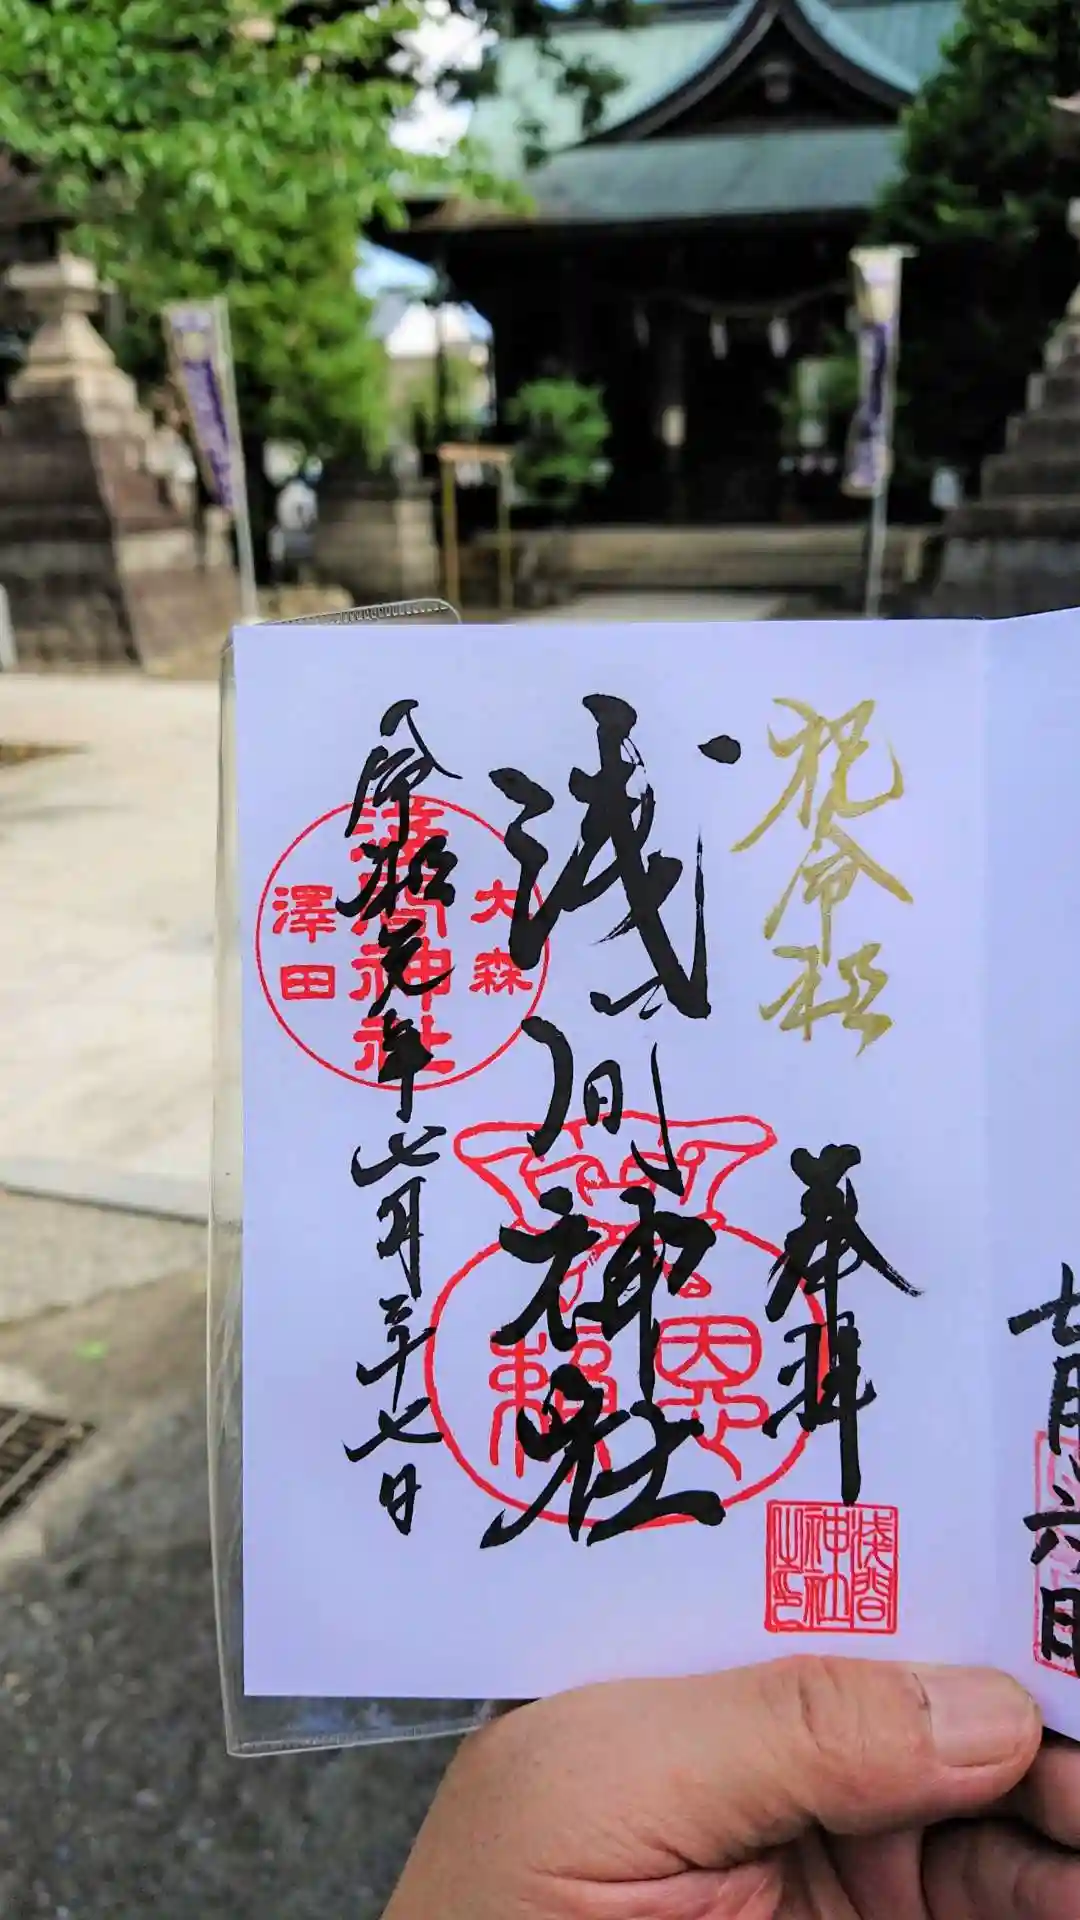 祝令和
奉拝
浅間神社
令和元年七月二十七日
大森
浅間神社
澤田
恩
頼
浅間
神社
之印
七月
六日